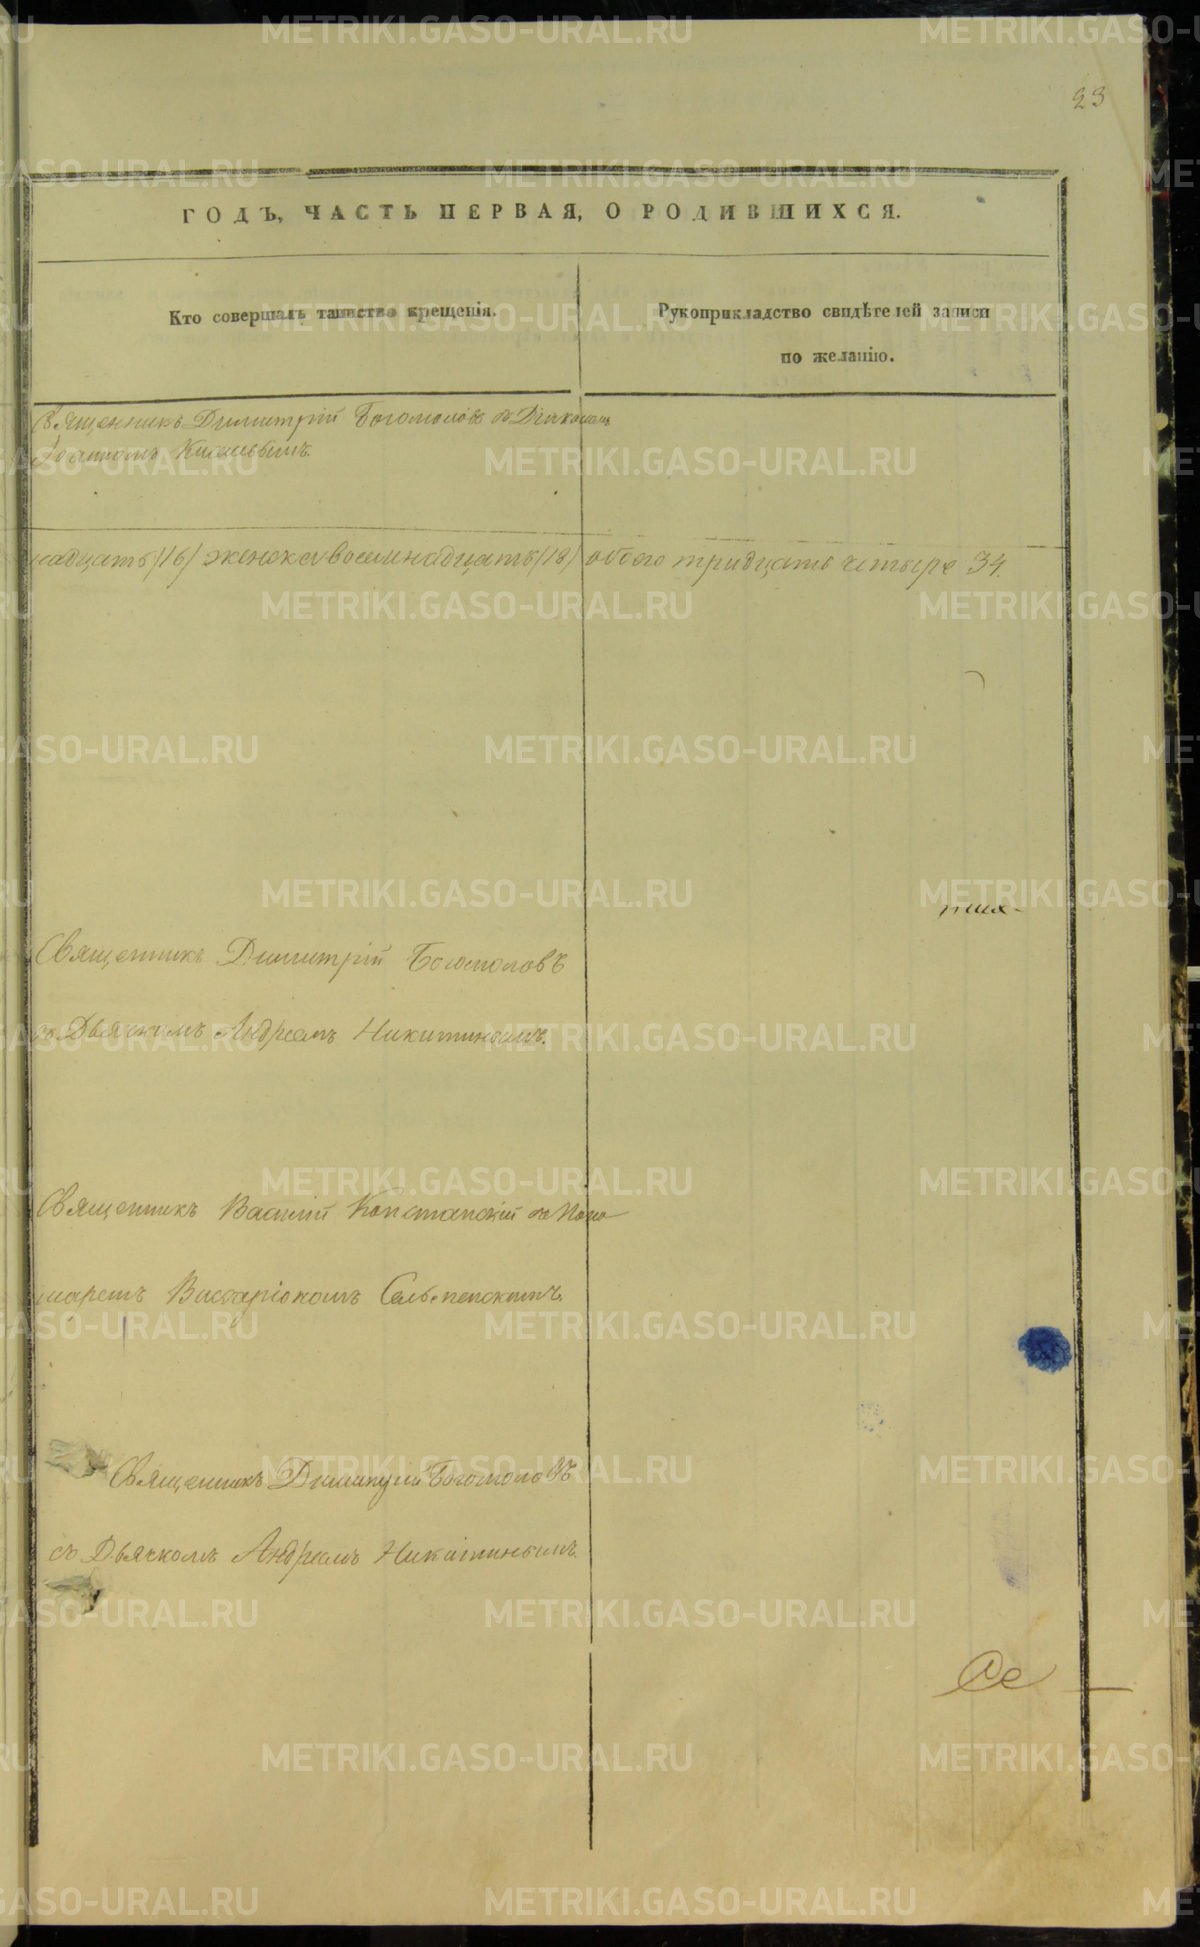 23
ГОДЪ, ЧАСТЬ ПЕРВАЯ, О РОДИВШИХСЯ.
Кто совершалъ таинство крещенія.
Рукоприкладство свидѣтелей записи
по желанію.
Священникъ Димитрій Богомоловъ съ Діякономъ
Іоанномъ
надцать (16) женска восемнадцать (18) обоего тридцать четыре 34.
Священникъ Димитрій Богомоловъ
съ Дьячкомъ Андреемъ Никитинымъ.
Священникъ Василій съ Поно
маремъ Виссаріономъ
Священникъ Димитрій Богомоловъ
съ Дьячкомъ Андреемъ Никитинымъ.
METRIKI.GASO-URAL.RU